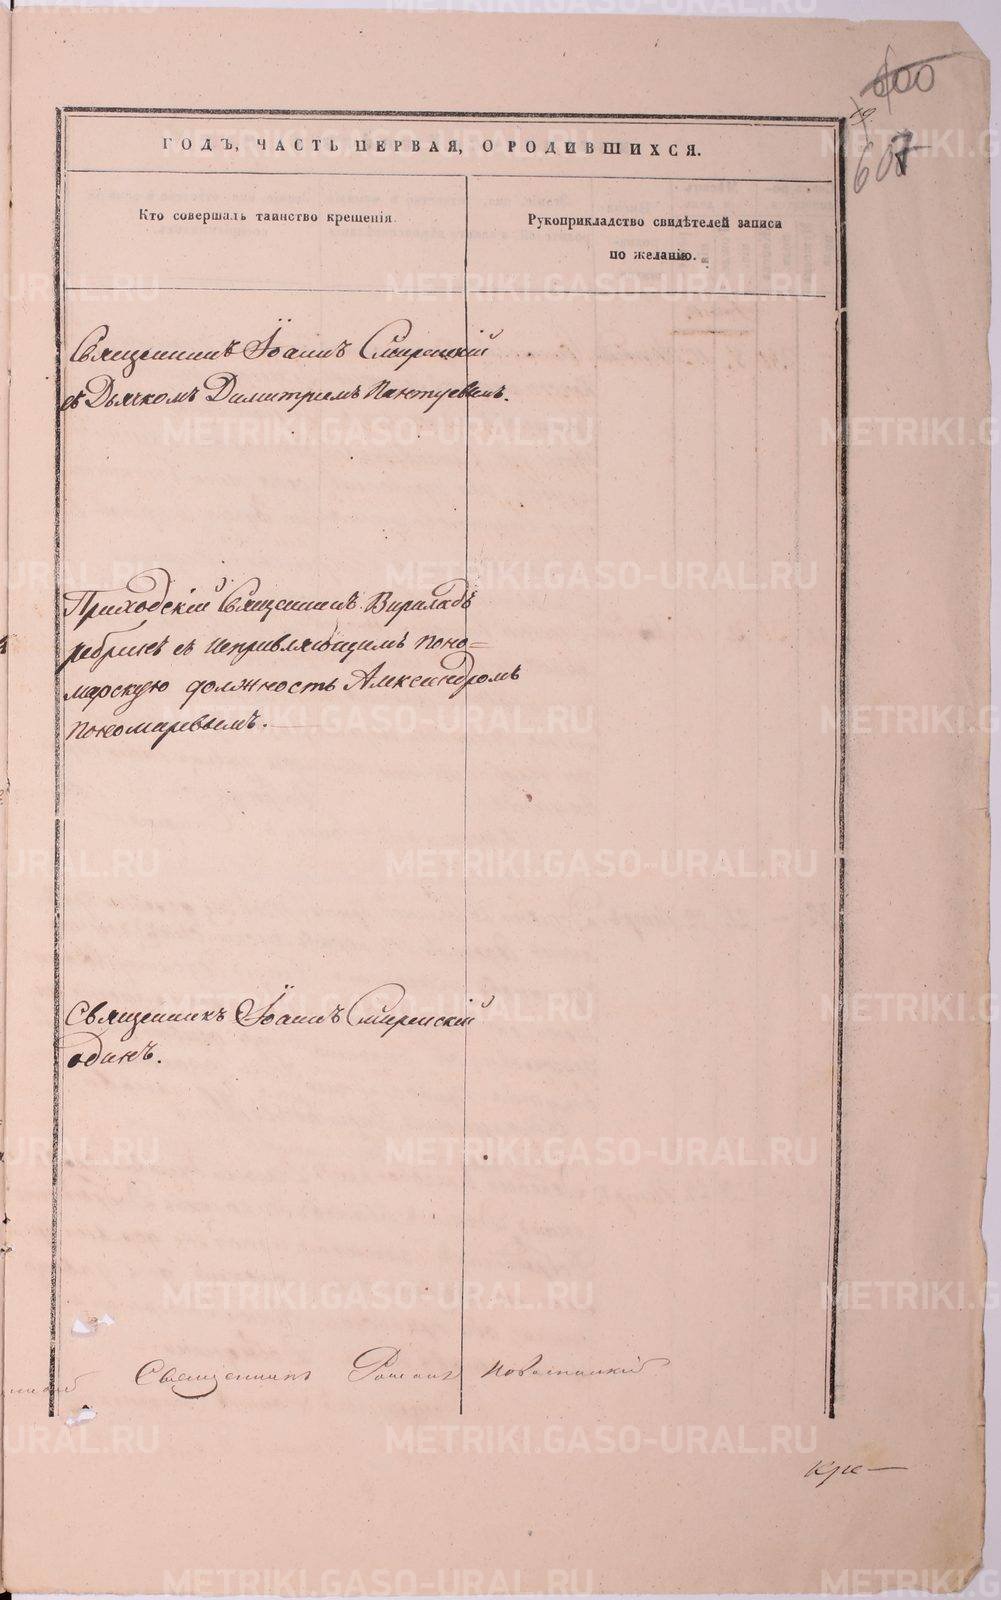 600
19.
607
ГОДЪ, ЧАСТЬ ПЕРВАЯ, О РОДИВШИХСЯ.
Кто совершалъ таинство крещенія.
Рукоприкладство свидѣтелей записи
по желанію.
Священникъ Іоаннъ Смиренскій
съ Дьячкомъ Димитріемъ Пантуевымъ.
Приходскій Священникъ
съ исправляющимъ поно=
марскую должность Александромъ
Пономаревымъ.
Священникъ Іоаннъ Смиренскій
одинъ.
Священникъ Романъ
Кре—
METRIKI.GASO-URAL.RU